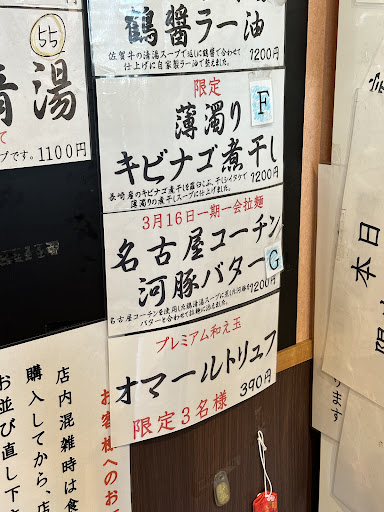 鶴醤ラー油
佐賀牛の清湯スープで返しに鶴醤で合わせて
仕上げに自家製ラー油で整えました。
1200円
限定
薄濁り
F
キビナゴ煮干し
長崎産のキビナゴ煮干しを羅臼こんぶ、干しシイタケで
薄濁りの煮干しスープに仕上げました。
1200円
3月16日一期一会拉麺
名古屋コーチン
河豚バター
G
1200円
名古屋コーチンを使用した鶏清湯スープに蒸した河豚を
バターと合わせて拉麺に添えました。
プレミアム和え玉
オマールトリュフ
390円
限定3名様
55
湯
プです。1100円
お客様へのお
店内混雑時は食
購入してから、店
お並び直し下
本日
ります